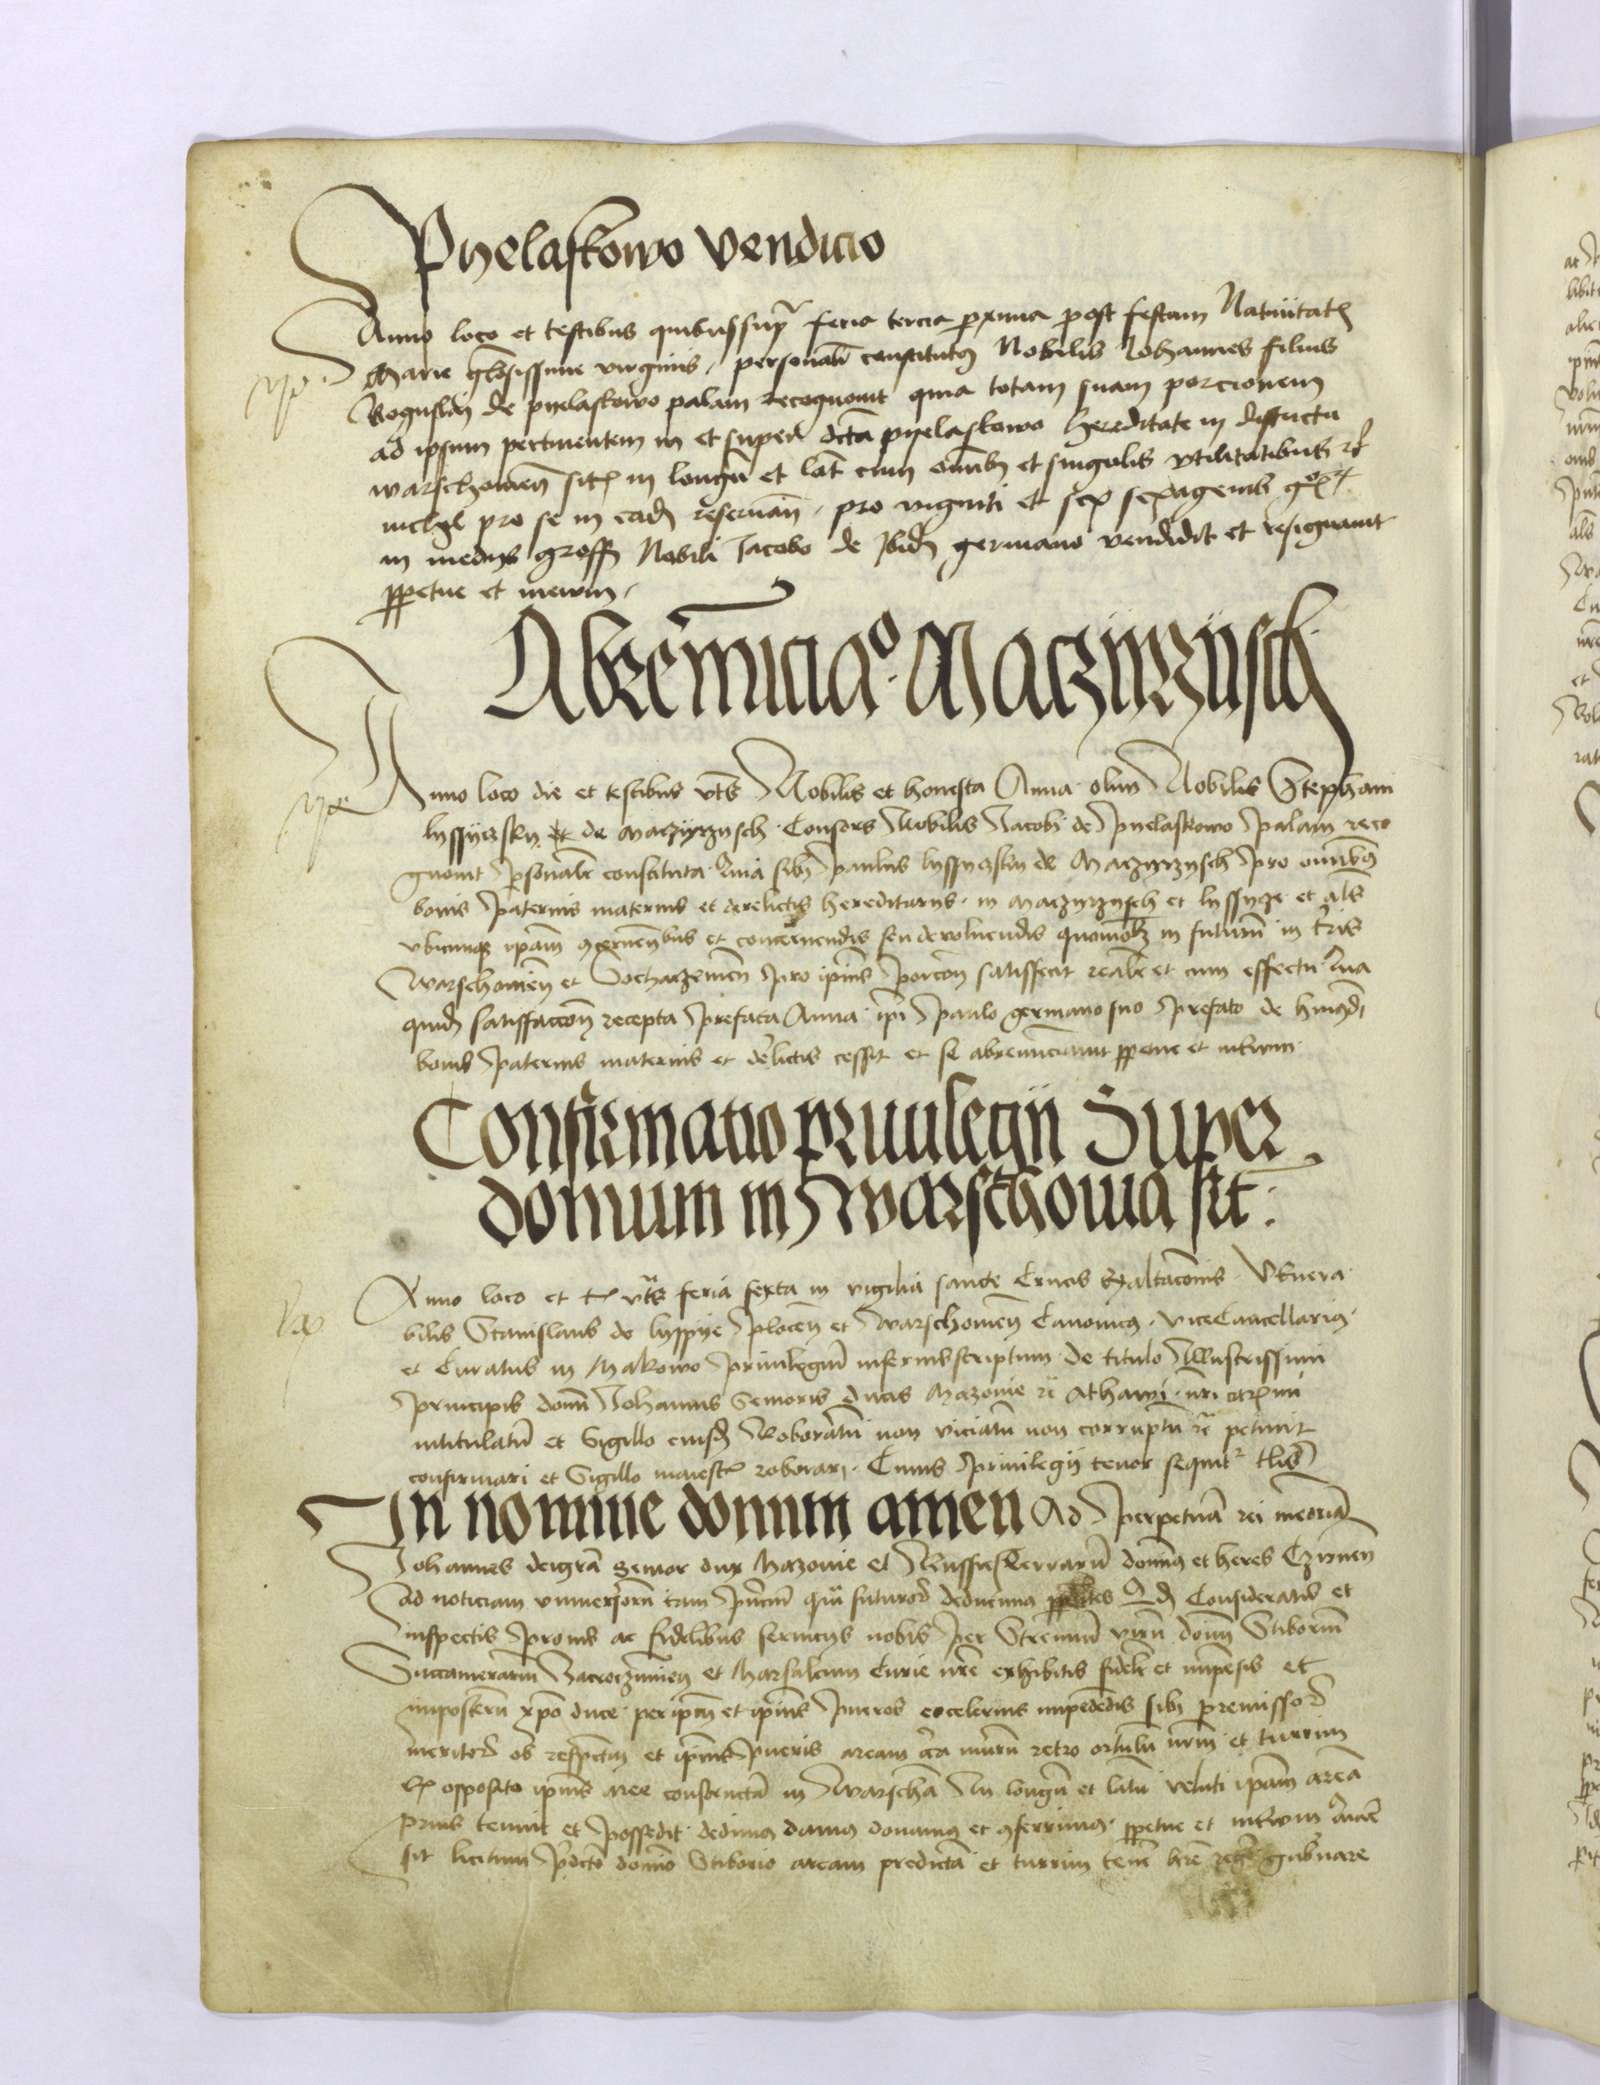 Pyelaskowo vendicio
Anno loco et testibus quibussupra feria tercia proxima post festum Natiuitatis
Marie gloriosissime virginis, personaliter constitutus Nobilis Johannes filius
Boguslai de pyelaskowo palam recognouit quia totam suam porcionem
ad ipsum pertinentem in et super dicta pyelaskowo hereditate in districtu
warschouien sitam in longum et latum cum omnibus et singulis vtilitatibus etc
nichil pro se in eadem reseruando, pro viginti et sex sexagenis grossorum
in medys grossis Nobili Jacobo de Ibidem germano vendidit et resignauit
perpetue et in ewm,
Abrenunciatio Maczyrzysch
Anno loco die et testibus vts Nobilis et honesta Anna olim Nobilis Stephani
lyssyczsky de Maczyrzysch Consors Nobilis Jacobi de Pyelaskowo palam reco
gnouit personaliter constituta Quia sibi Paulus lyssyczsky de Maczyrzysch pro omnibus
bonis paternis maternis et derelictis hereditarys in Maczyrzysch et lyssycze et als
vbicunque ipsam concernentibus et concernendis seu deuoluendis quomodolibet in futurum in terris
Warschouien et Sochaczeuien pro ipsius porcione satisfecit realiter et cum effectu Qua
quidem satisfaccione recepta prefata Anna ipsi Paulo germano suo prefato de huiusmodi
bonis paternis maternis et derelictis cessit et se abrenunciauit perpetue et in ewm
Confirmatio priuilegii Super
domum in Warschouia sit.
Anno loco et t vts feria sexta in vigilia sancte Crucis exaltacionis Venera
bilis Stanislaus de lyppye Plocen et Warschouien Canonicus viceCancellarius
et Curatus in Makowo priuilegium inferiusscriptum de titulo Illustrissimi
principis domini Johannis Senioris ducis Mazouie etc Athaui nri carissimi
intitulatum et Sigillo eiusdem Roboratum non viciatum non corruptum etc petiuit
confirmari et Sigillo maiestatis roborari Cuius priuilegii tenor sequitur talis
In nomine domini amen Ad perpetuam rei memoriam
Johannes deigra senior dux Mazouie et Russie Terrarum dominus et heres Czirnen
Ad noticiam vniuersorum tam presencium quam futurorum deducimus Quod Consideratis et
inspectis pronis ac fidelibus seruicys nobis per Strenuum virum dominum Stiborium
Succamerarium Zacroczimien et Marsalcum Curie nre exhibitis fideliter et impensis et
imposterum xpo duce per ipsum et ipsius pueros celerius impendendis sibi premissorum
meritorum ob respectum et ipsius pueris aream circa murum retro ortulum nrum et turrim
ex opposito ipsius aree constructam in Warschouia In longum et latum veluti ipsam aream
prius tenuit et possedit dedimus damus donamus et conferimus perpetue et in ewm
sit licitum predicto domino Stiborio aream predictam et turrim tenere habere regere gubernare